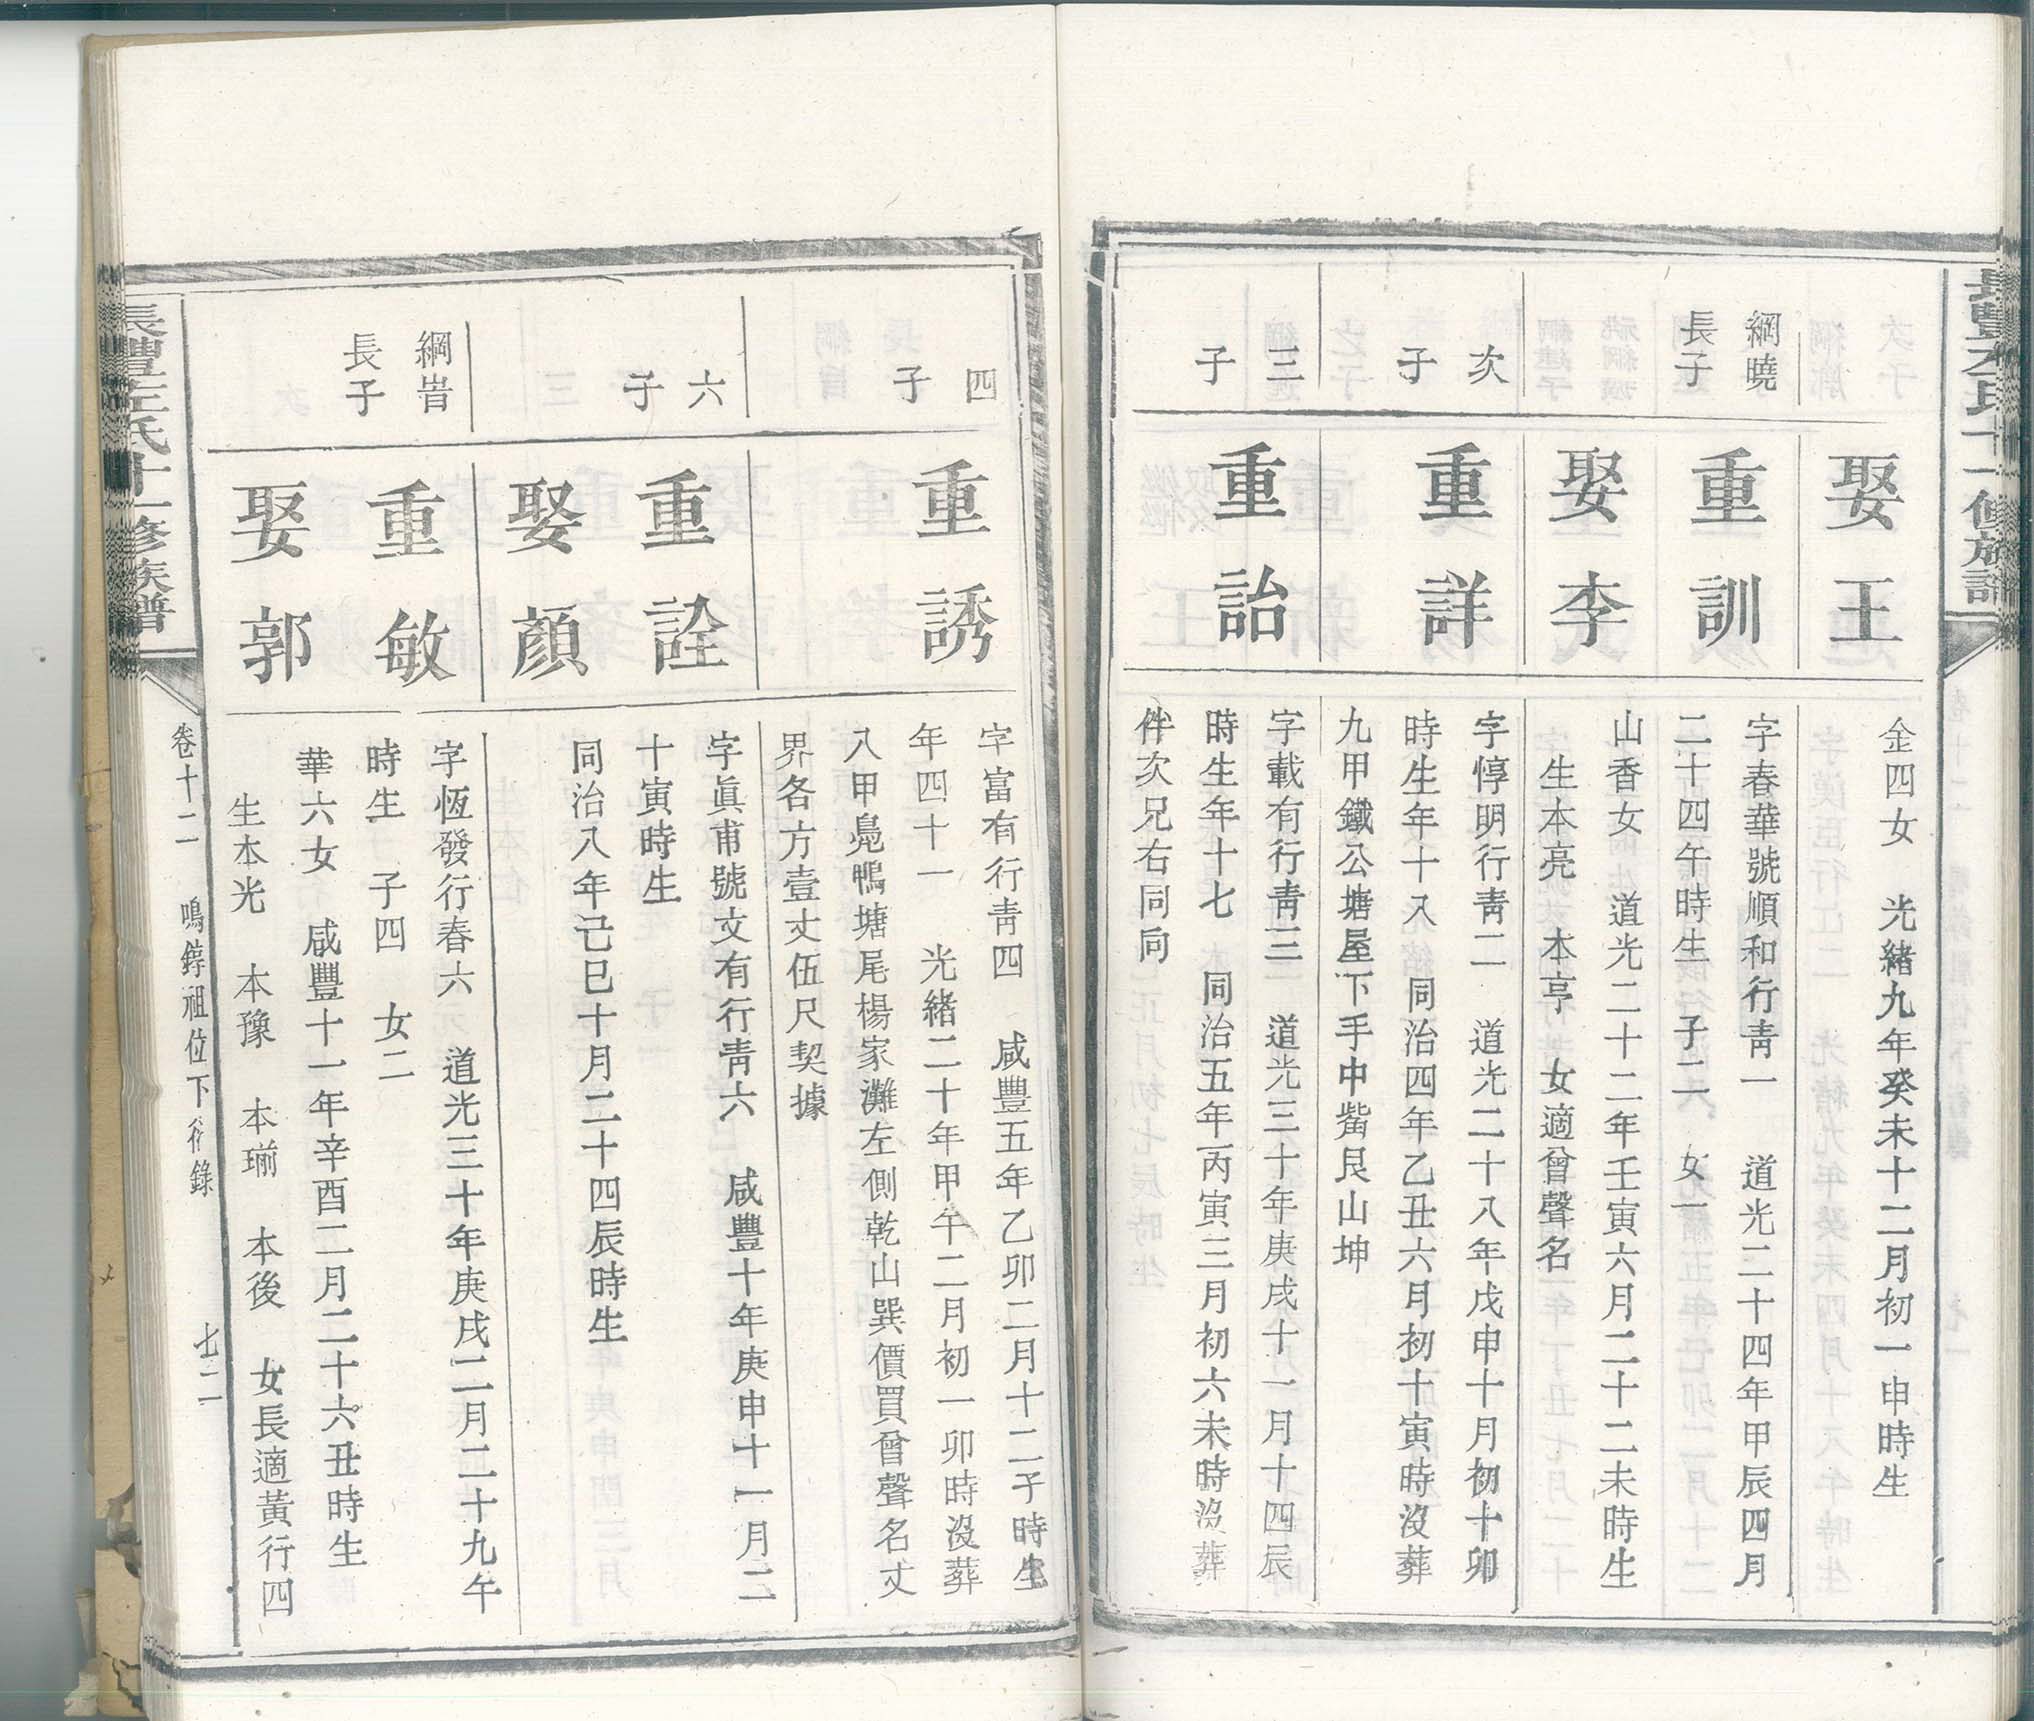 次
子
三
子
綱曉
長子
娶王
重訓
娶李
重詳
重詒
金四女 光緒九年癸未十二月初一申時生
字春華號順和行靑一 道光二十四年甲辰四月
二十四午時生 子二 女一
山香女 道光二十二年壬寅六月二十二未時生
生本亮 本亨 女適曾聲名
字惇明行靑二 道光二十八年戊申十月初十卯
時生年十八 同治四年乙丑六月初十寅時沒葬
九甲鐵公塘屋下手中嘴艮山坤
字載有行靑三 道光三十年庚戌十一月十四辰
時生年十七 同治五年丙寅三月初六未時沒葬
伴次兄右同向
四
子
六
子
綱旹
長子
重誘
重詮
娶顏
重敏
娶郭
字富有行靑四 咸豐五年乙卯二月十二子時生
年四十一 光緒二十年甲午二月初一卯時沒葬
八甲鳧鴨塘尾楊家灘左側乾山巽價買曾聲名丈
界各方壹丈伍尺契據
字眞甫號文有行靑六 咸豐十年庚申十一月二
十寅時生
同治八年己巳十月二十四辰時生
字恆發行春六 道光三十年庚戌二月二十九午
時生 子四 女二
華六女 咸豐十一年辛酉二月二十六丑時生
生本光 本豫 本瑞 本後 女長適黃行四
長豐左氏十一修族譜
卷十二 鳴錞祖位下衍錄 七二